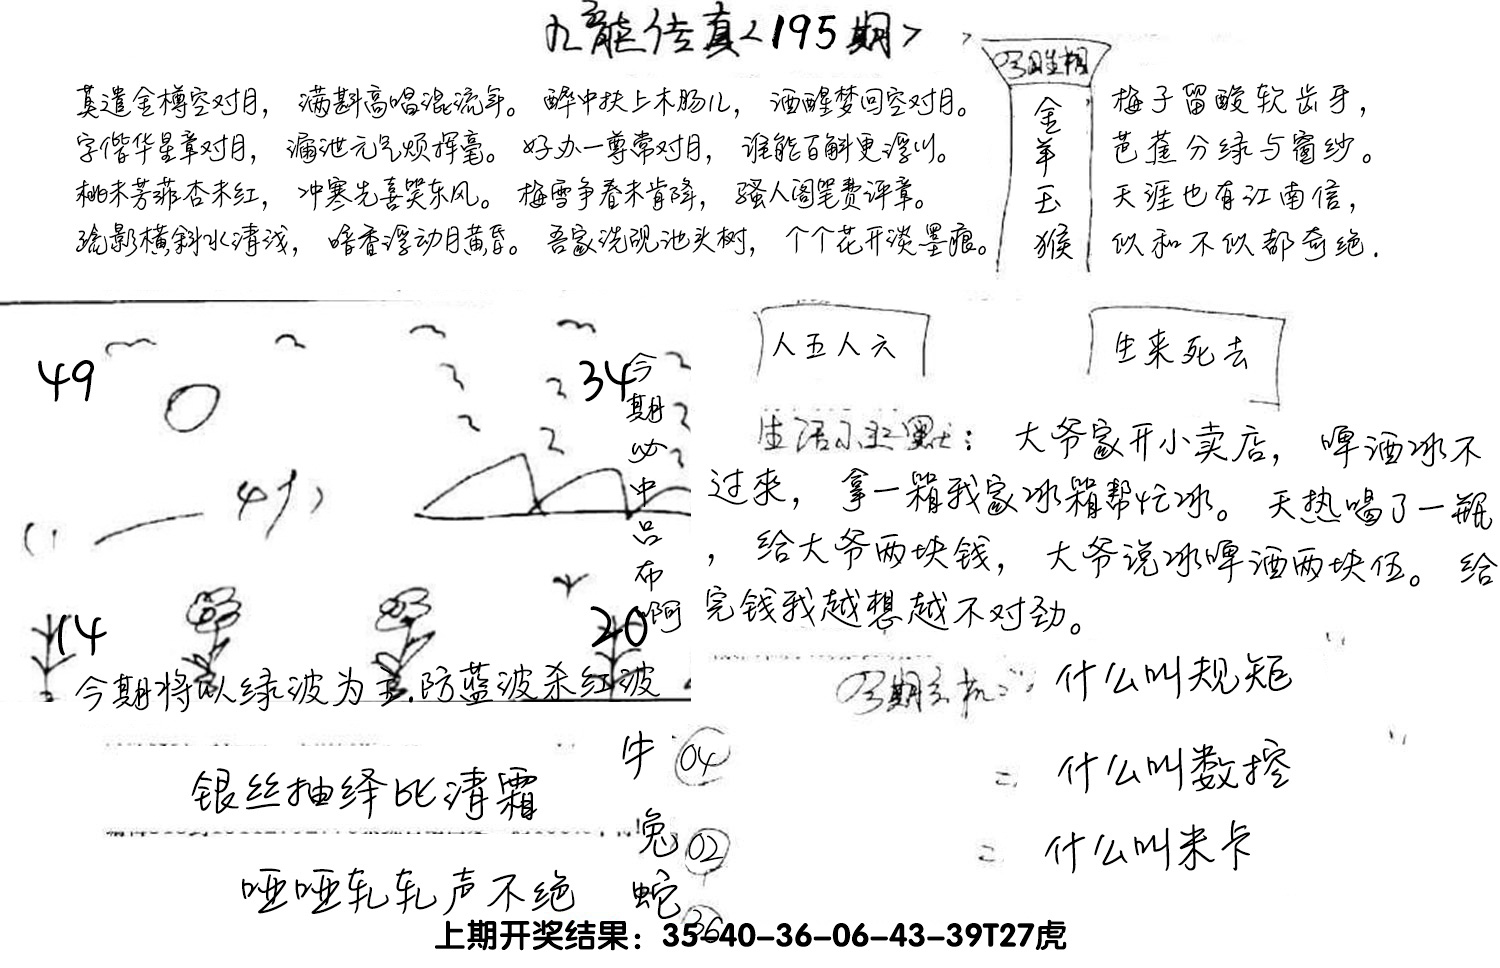 九龙传真<195期>
莫遣金樽空对月，满斟高唱混流年。醉中扶上木肠儿，酒醒梦回空对月。
字偕华星章对月，漏泄元气烦挥毫。好办一尊常对月，谁能百斛更浮川。
桃未芳菲杏未红，冲寒先喜笑东风。梅雪争春未肯降，骚人阁笔费评章。
疏影横斜水清浅，暗香浮动月黄昏。吾家洗砚池头树，个个花开淡墨痕。
金
羊
玉
猴
梅子留酸软齿牙，
芭蕉分绿与窗纱。
天涯也有江南信，
似和不似都奇绝.
49
34
14
20
今期必中吕布啊
今期将以绿波为主.防蓝波杀红波
人五人六
生来死去
生活小幽默：大爷家开小卖店，啤酒冰不
过来，拿一箱我家冰箱帮忙冰。天热喝了一瓶
，给大爷两块钱，大爷说冰啤酒两块伍。给
完钱我越想越不对劲。
什么叫规矩
= 什么叫数控
= 什么叫米卡
银丝抽绎比清霜
哑哑轧轧声不绝
牛 04
兔 02
蛇 36
上期开奖结果：35-40-36-06-43-39T27虎